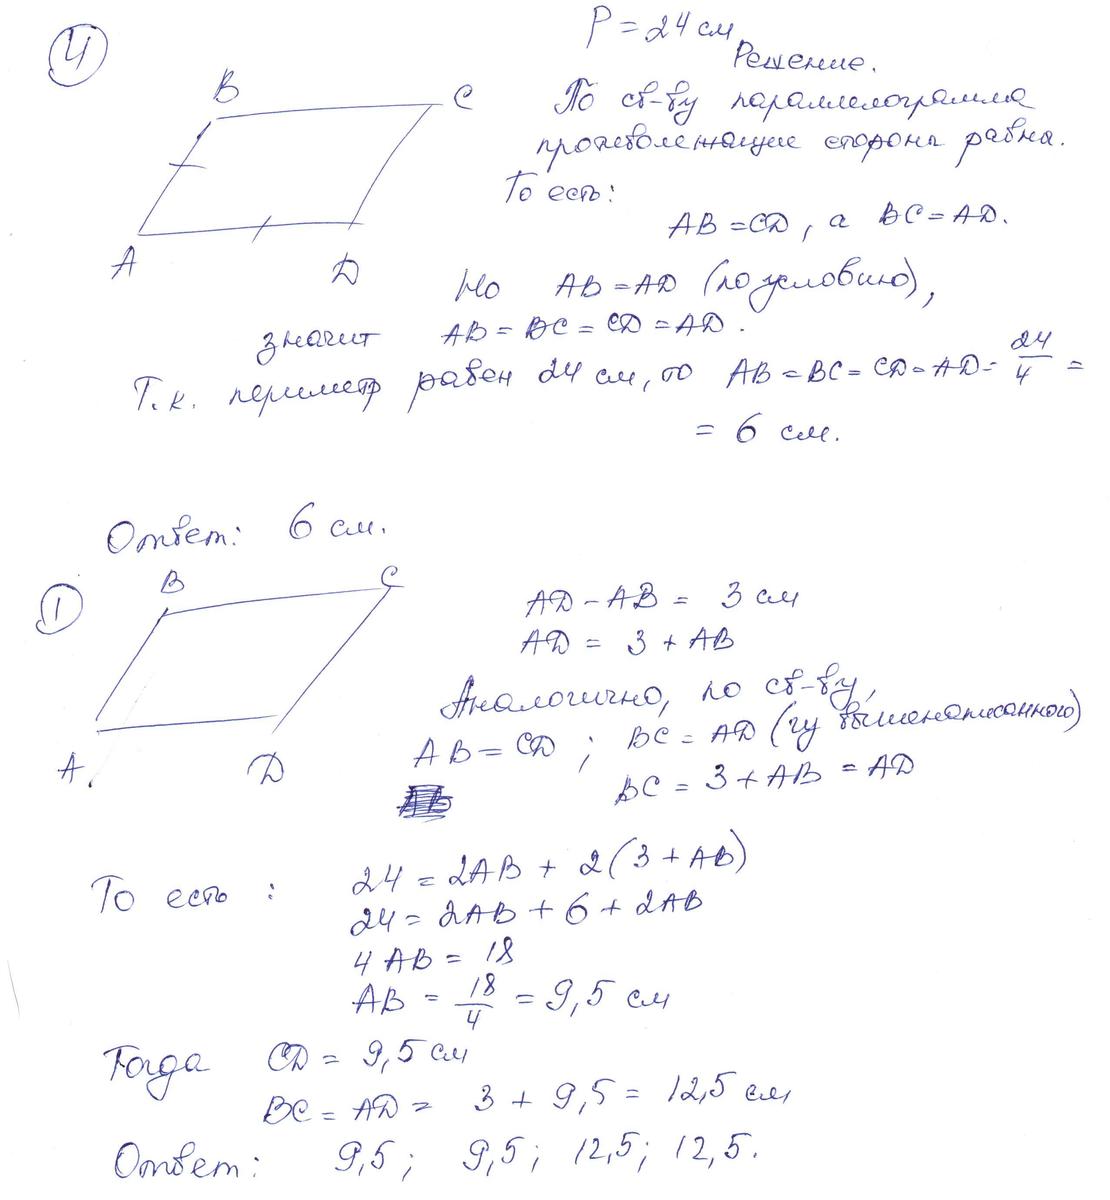 4
P = 24 см
Решение.
B
C
A
D
По св-ву параллелограмма
противолежащие стороны равны.
То есть:
AB = CD, а BC = AD.
Но AB = AD (по условию),
значит AB = BC = CD = AD.
Т.к. периметр равен 24 см, то AB = BC = CD = AD = 24/4 =
= 6 см.
Ответ: 6 см.
1
B
C
A
D
AD - AB = 3 см
AD = 3 + AB
Аналогично, по св-ву,
AB = CD; BC = AD (из вышенаписанного)
BC = 3 + AB = AD
То есть: 24 = 2AB + 2(3 + AB)
24 = 2AB + 6 + 2AB
4AB = 18
AB = 18/4 = 9,5 см
Тогда CD = 9,5 см
BC = AD = 3 + 9,5 = 12,5 см
Ответ: 9,5; 9,5; 12,5; 12,5.